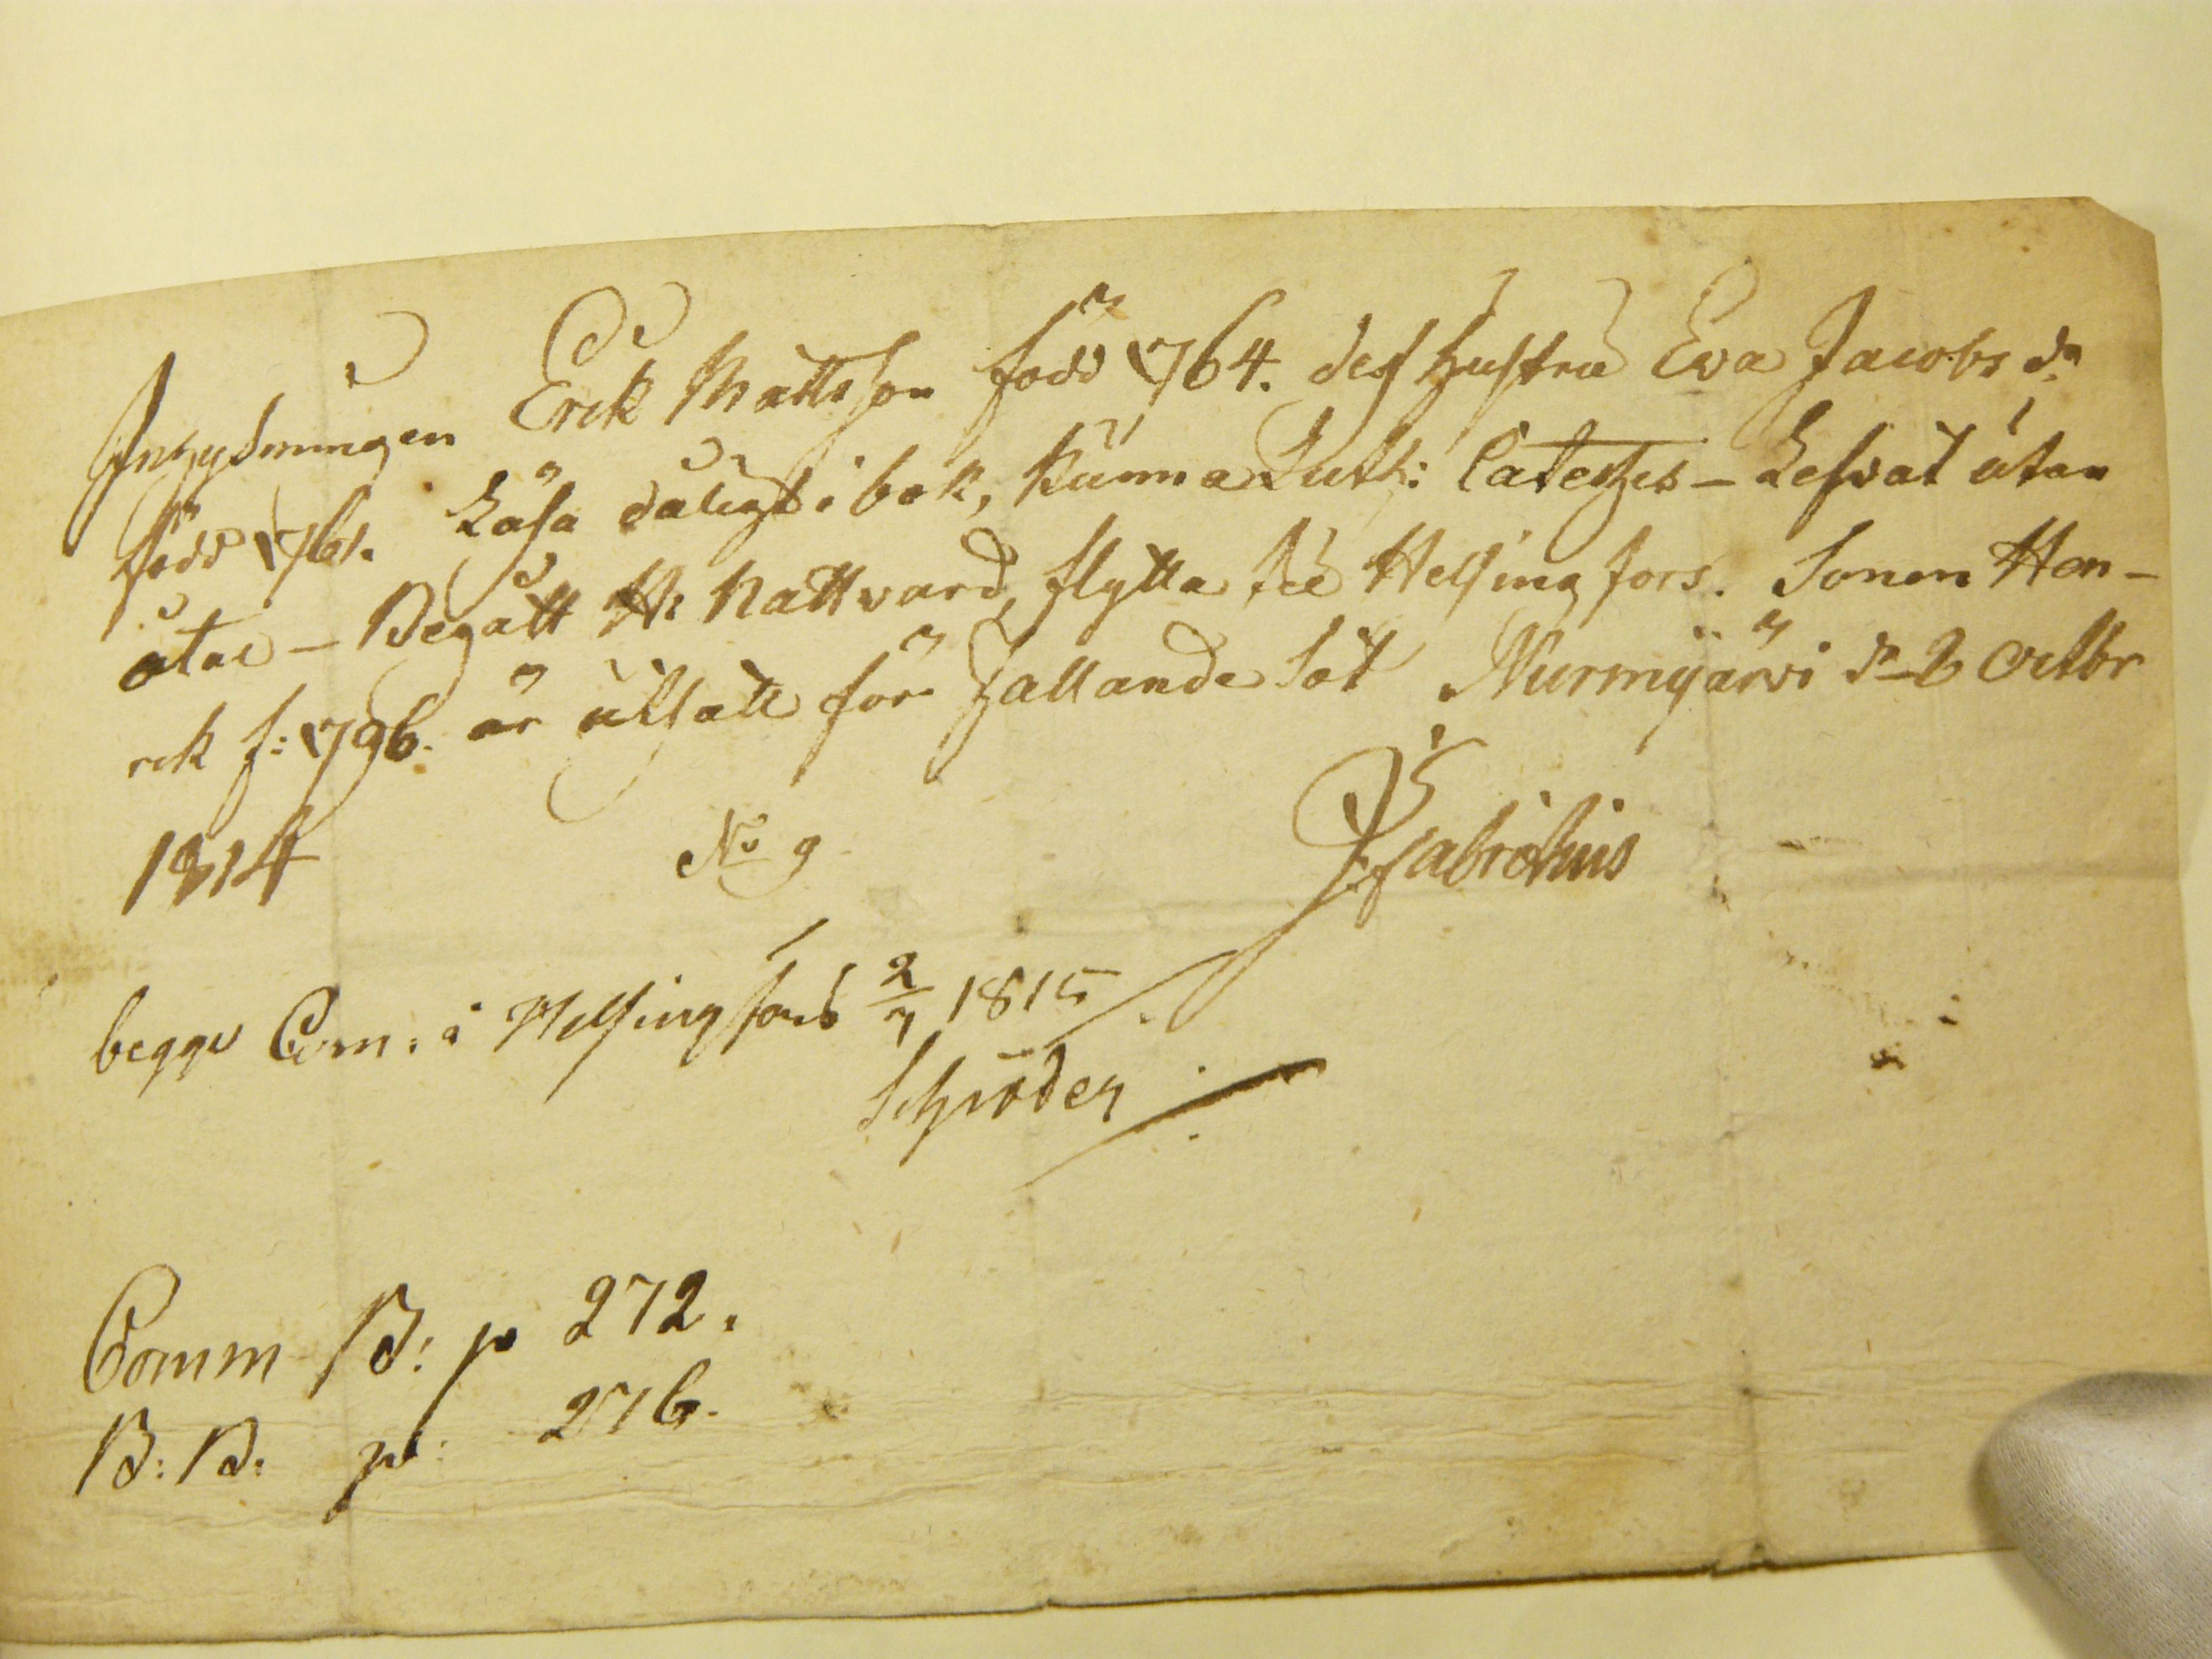 Inhysningen Erik Mattsson född 1764. dess hustru Eva Jacobs dr
född 1761. Läsa dåligt i bok, kunna Luth: Cateches – Lefvat utan
åtal – Begått H: Nattvard, flytta till Helsingfors. Sonen Hen-
rik f: 1796. är utsatt för fallande sot Nurmijärvi dn 2 Octbr
1814
No 9
begge Com: i Helsingfors 2/7 1815
Schröder
Comm B: p 272.
B: B. p: 276.